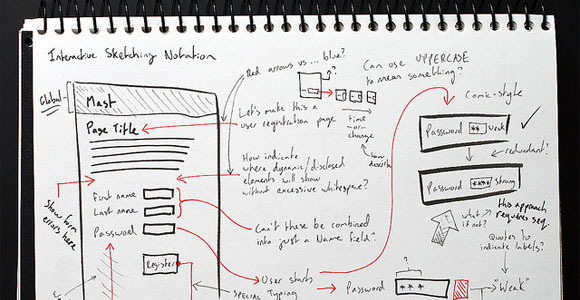 Interactive Sketching Notation
Global
Mast
Page Title
First name
Last name
Password
Register
Show form
errors here
Red arrows vs ... blue?
Let's make this a
user registration page
How indicate
where dynamic/disclosed
elements will show
without excessive whitespace?
Can't these be combined
into just a Name field?
User starts
SPECIAL Typing
?
time
or
change
how
describe
Can use UPPERCASE
to mean something?
Comic-style
Password ** weak
redundant!
Password **** strong
what
if not?
this approach
requires seq.
Quotes to
indicate labels?
?
Password ***
"Weak"